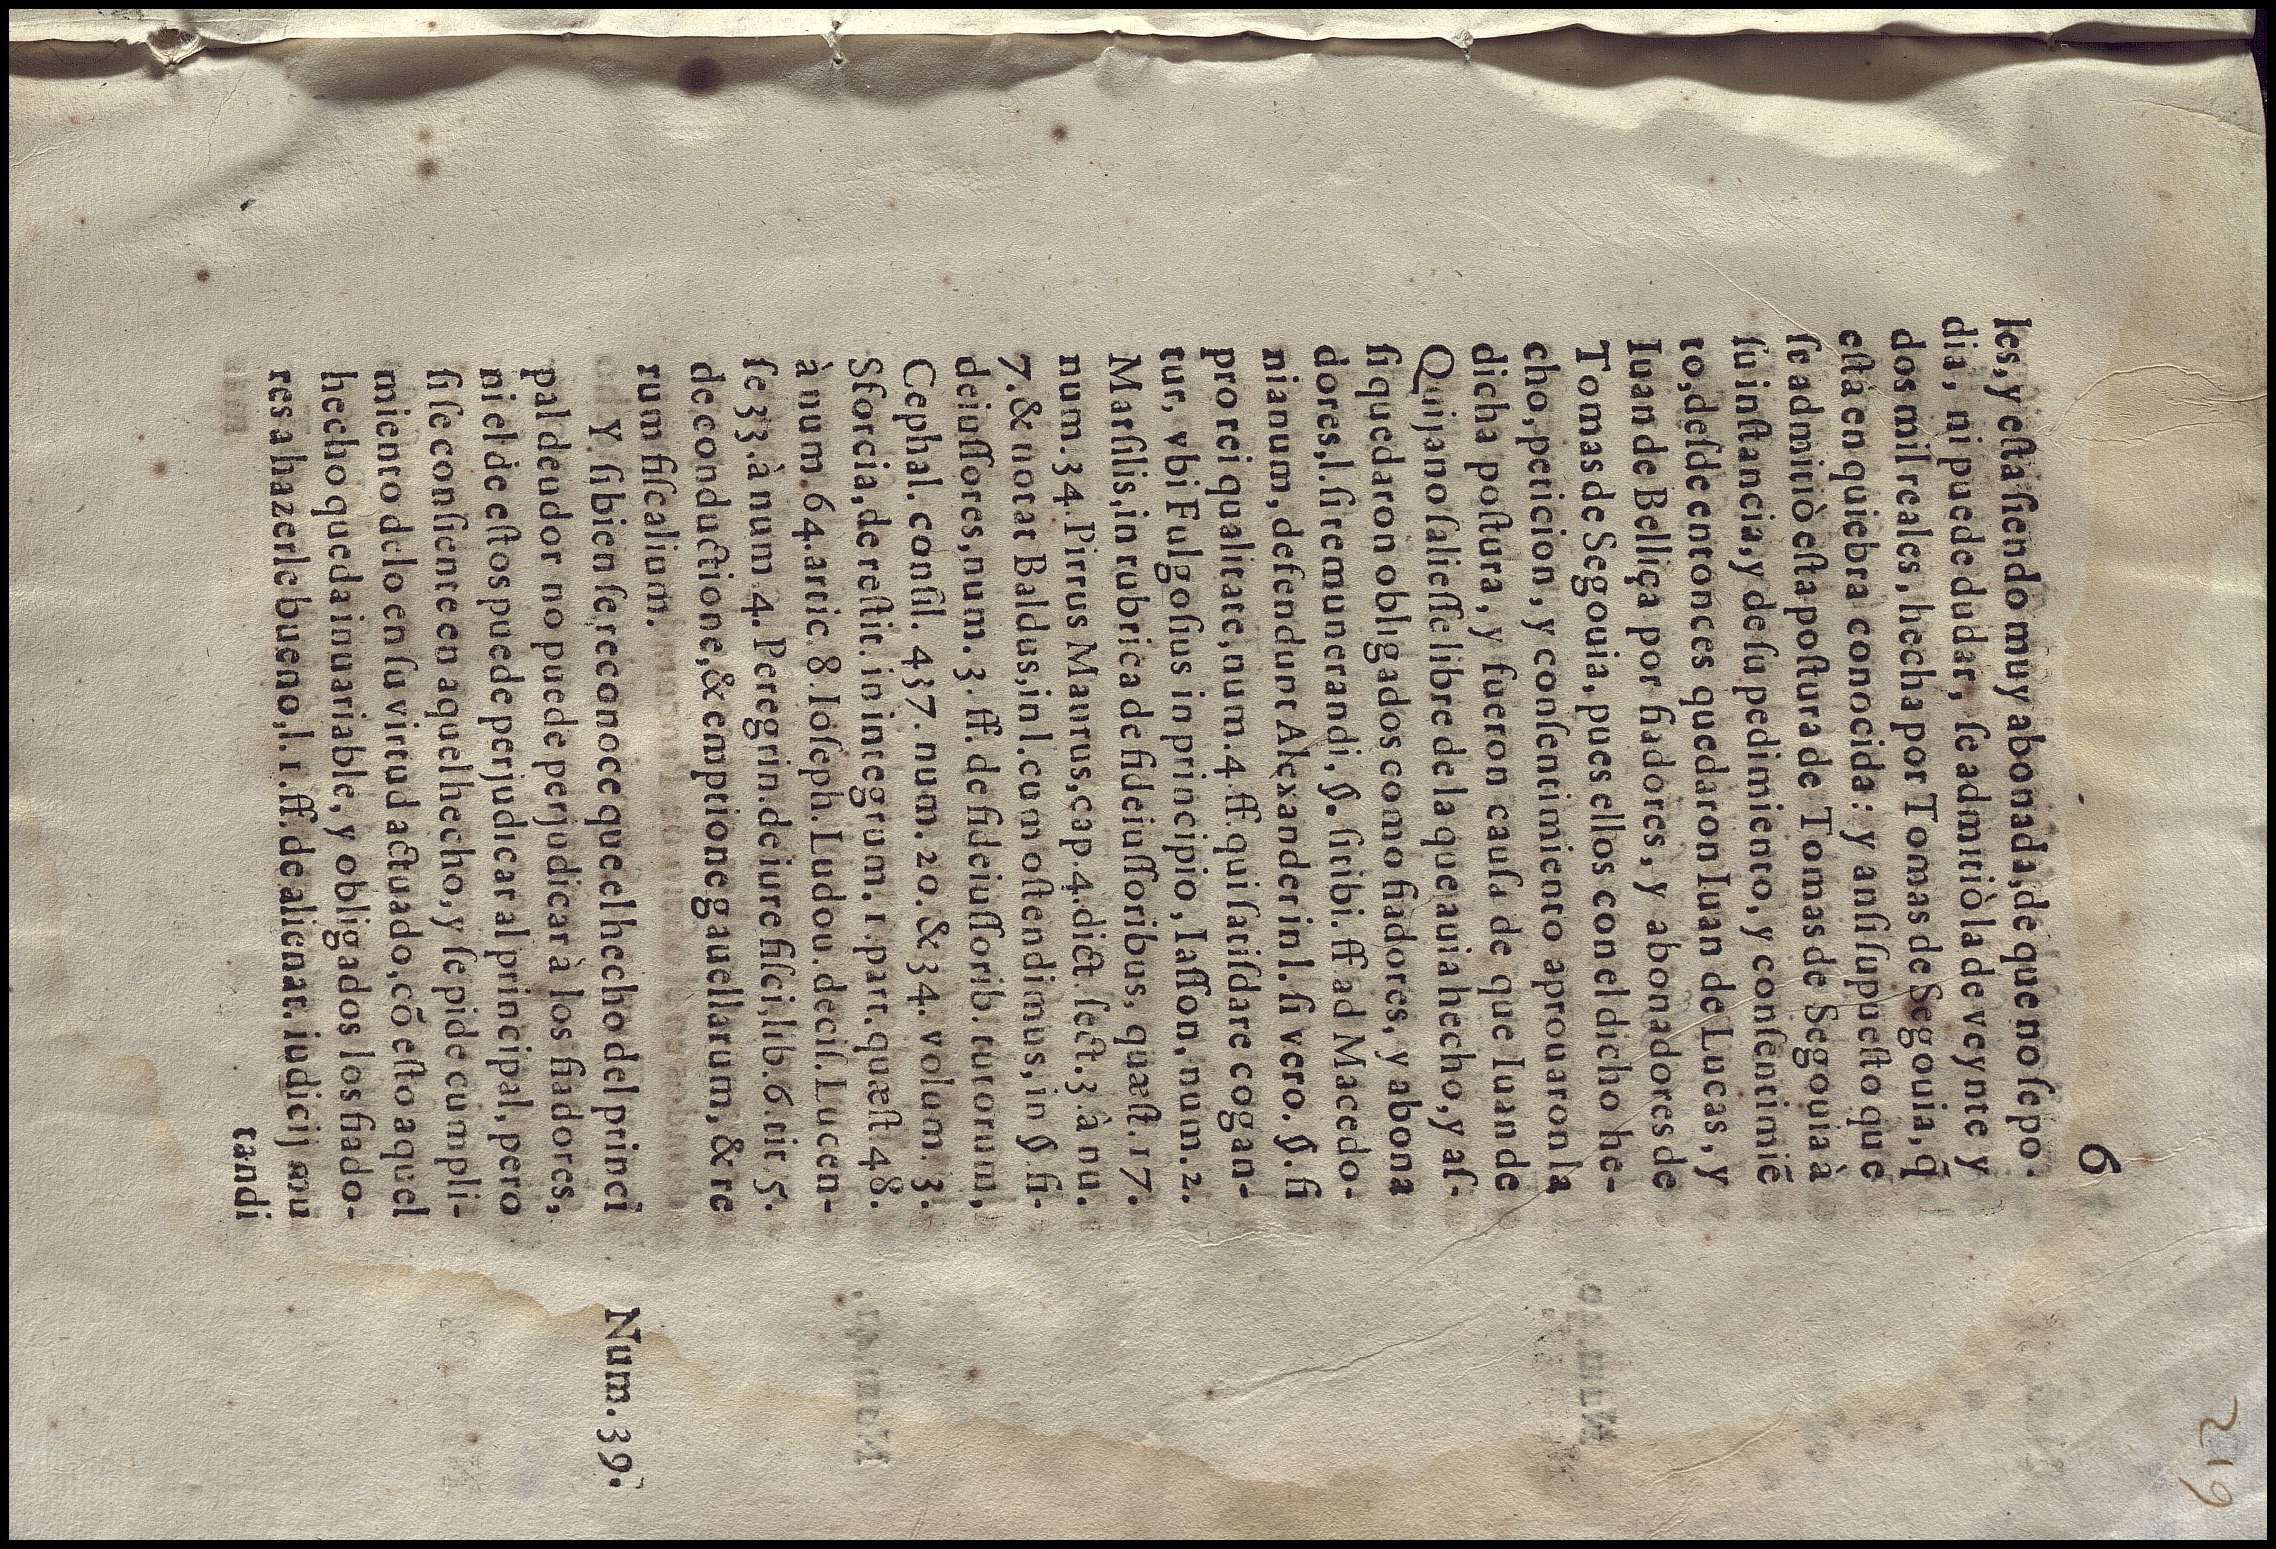 6
612
les, y eſta ſiendo muy abonada, de que no ſe po-
dia, ni puede dudar, ſe admitiò la de veynte y
dos mil reales, hecha por Tomas de Segouia, q̃
eſtà en quiebra conocida: y anſi ſupueſto que
ſe admitiò eſta poſtura de Tomas de Segouia à
ſu inſtancia, y de ſu pedimiento, y conſentimiẽ
to, deſde entonces quedaron Iuan de Lucas, y
Iuan de Belliça por fiadores, y abonadores de
Tomas de Segouia, pues ellos con el dicho he-
cho, peticion, y conſentimiento aprouaron la
dicha poſtura, y fueron cauſa de que Iuan de
Quijano ſalieſſe libre de la que auia hecho, y aſ-
ſi quedaron obligados como fiadores, y abona
dores, l. ſi remunerandi, §. ſi tibi. ff ad Macedo-
nianum, defendunt Alexander in l. ſi vero. §. ſi
pro rei qualitate, num. 4 ff qui ſatiſdare cogan-
tur, vbi Fulgoſius in principio, Iaſſon, num. 2.
Marſilis, in rubrica de fideiuſſoribus, quæſt. 17.
num. 34. Pirrus Maurus, cap. 4. dict. ſect. 3. à nu.
7. & notat Baldus, in l. cum oſtendimus, in §. fi-
deiuſſores, num. 3. ff. de fideiuſſorib. tutorum,
Cephal. conſil. 437. num. 20. & 34. volum. 3.
Sforcia, de reſtit. in integrum. 1. part. quæſt. 48.
à num. 64. artic. 8 Ioſeph. Ludou. deciſ. Lucen-
ſe 33. à num 4. Peregrin. de iure fiſci, lib. 6. tit 5.
de conductione, & emptione gauellarum, & re
rum fiſcalium.
Y ſi bien ſe reconoce que el hecho del princi
pal deudor no puede perjudicar à los fiadores,
ni el de eſtos puede perjudicar al principal, pero
ſi ſe conſiente en aquel hecho, y ſe pide cumpli-
miento de lo en ſu virtud actuado, cõ eſto aquel
hecho queda inuariable, y obligados los fiado-
res a hazerle bueno, l. 1. ff. de alienat. iudicij mu
tandi
Num. 39.